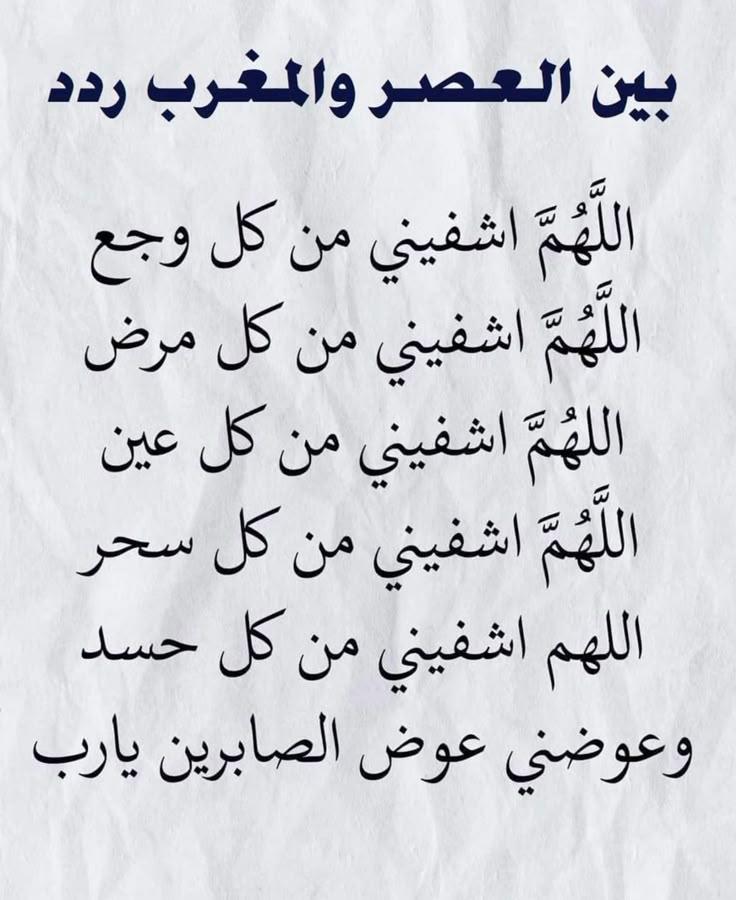 بين العصر والمغرب ردد
اللَّهُمَّ اشفيني من كل وجع
اللَّهُمَّ اشفيني من كل مرض
اللهُمَّ اشفيني من كل عين
اللَّهُمَّ اشفيني من كل سحر
اللهم اشفيني من كل حسد
وعوضني عوض الصابرين يارب